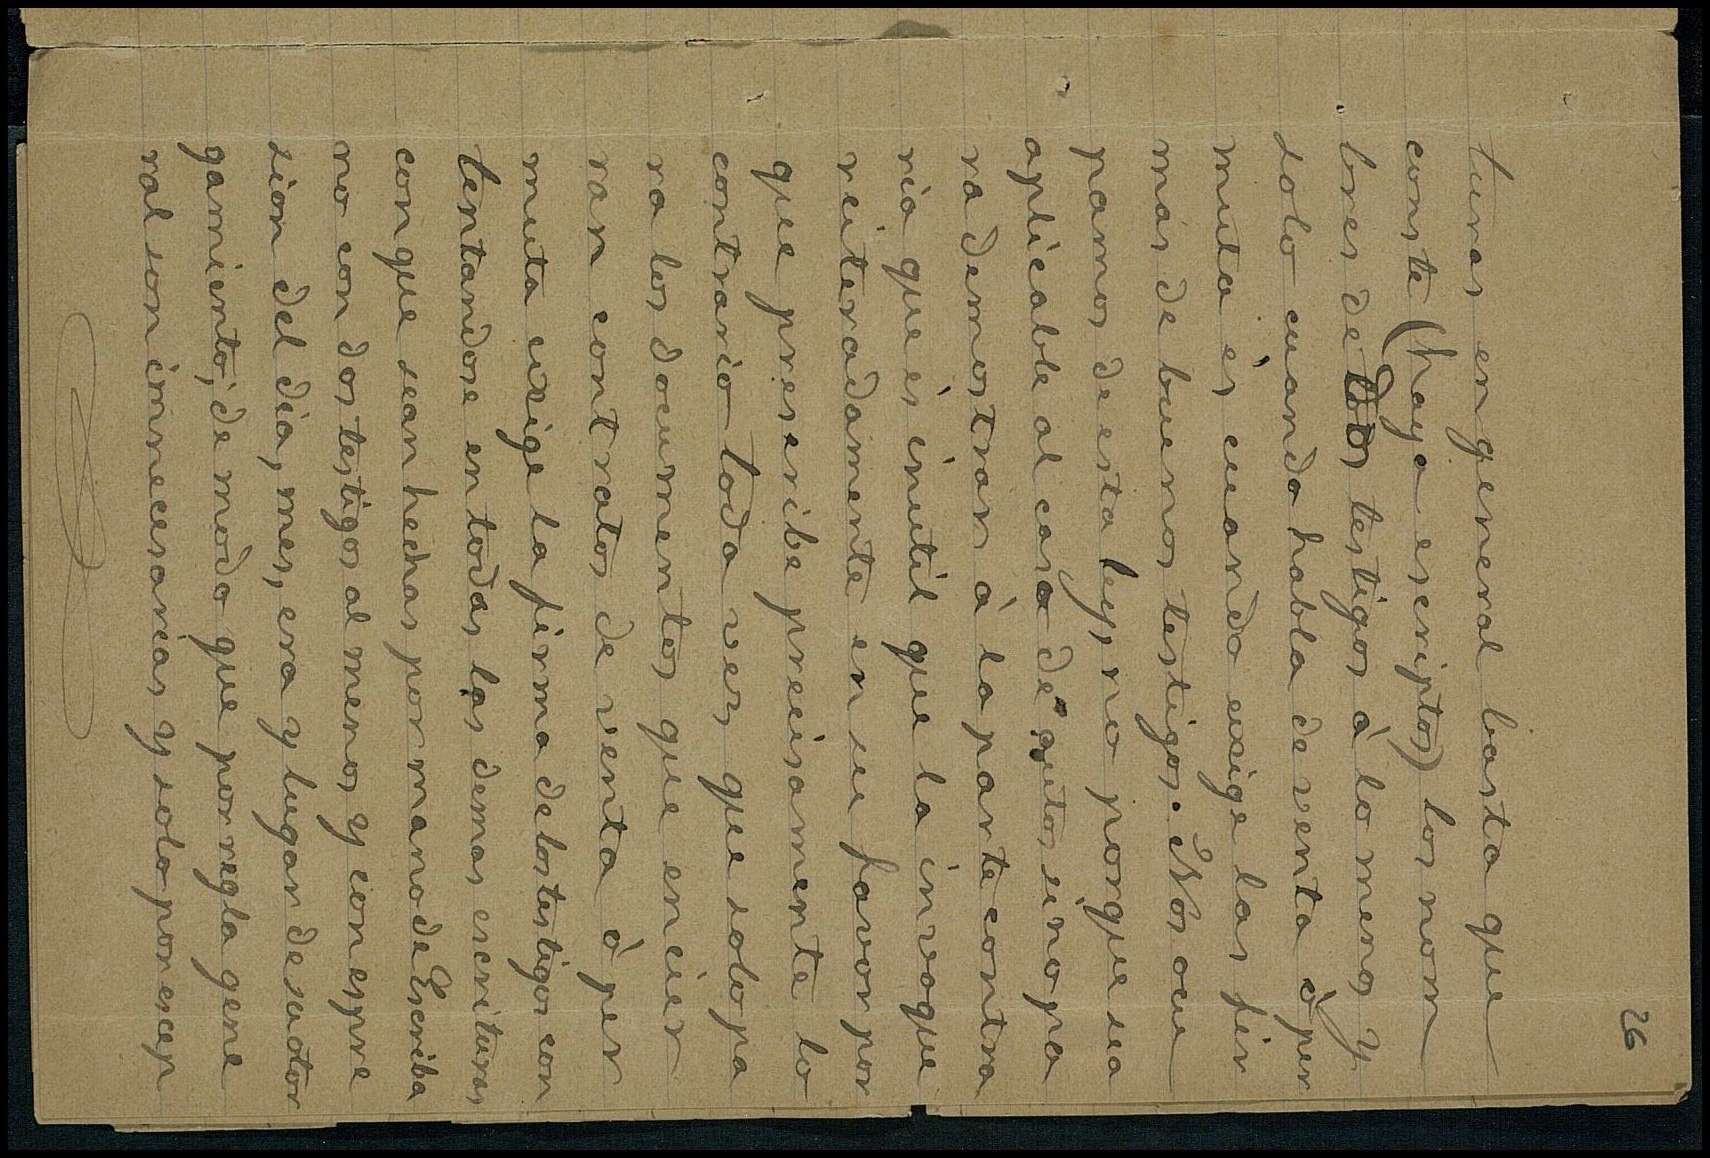 26
turas en general basta que
conste (haya escriptos) los nom
bres de dos testigos à lo menos y
solo cuando habla de venta ò per
muta ès cuando exige las fir
mas de buenos testigos. Nos ocu
pamos de esta ley, no porque sea
aplicable al caso de autos sino pa
ra demostrar à la parte contra
ria que ès inutil que la invoque
reiteradamente en su favor por
que prescribe precisamente lo
contrario toda vez que solo pa
ra los documentos que encier
ran contratos de venta ò per
muta exige la firma de los testigos con
tentandose en todas las demas escrituras
con que sean hechas por mano de Escriba
no con dos testigos al menos y con espre
sion del dia, mes, era y lugar de su otor
gamiento; de modo que por regla gene
ral son innecesarias y solo por escep